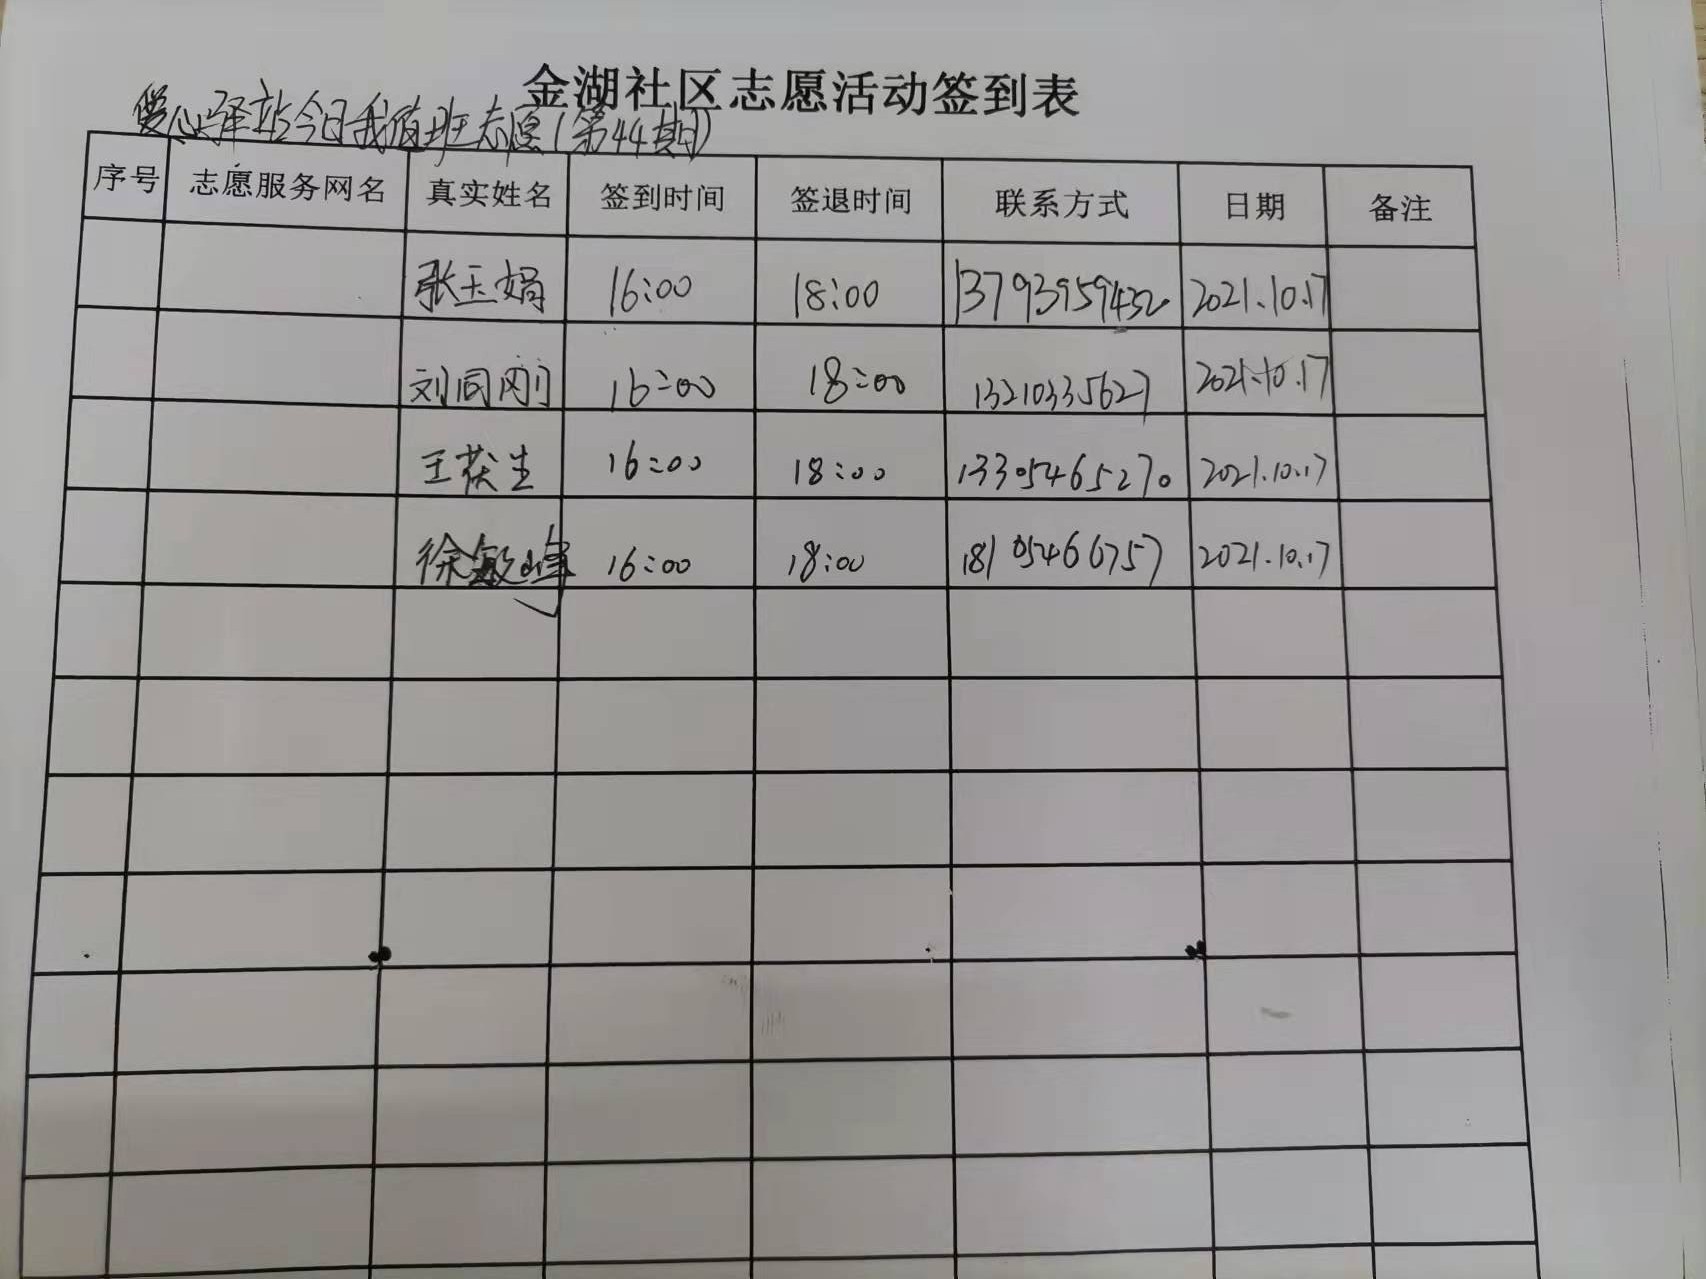 金湖社区志愿活动签到表
爱心驿站今日我值班志愿(第44期)
序号 志愿服务网名 真实姓名 签到时间 签退时间 联系方式 日期 备注
张玉娟 16:00 18:00 13793959432 2021.10.17
刘同刚 16:00 18:00 13210335627 2021.10.17
王茯生 16:00 18:00 13305465270 2021.10.17
徐敏峰 16:00 18:00 18105466757 2021.10.17